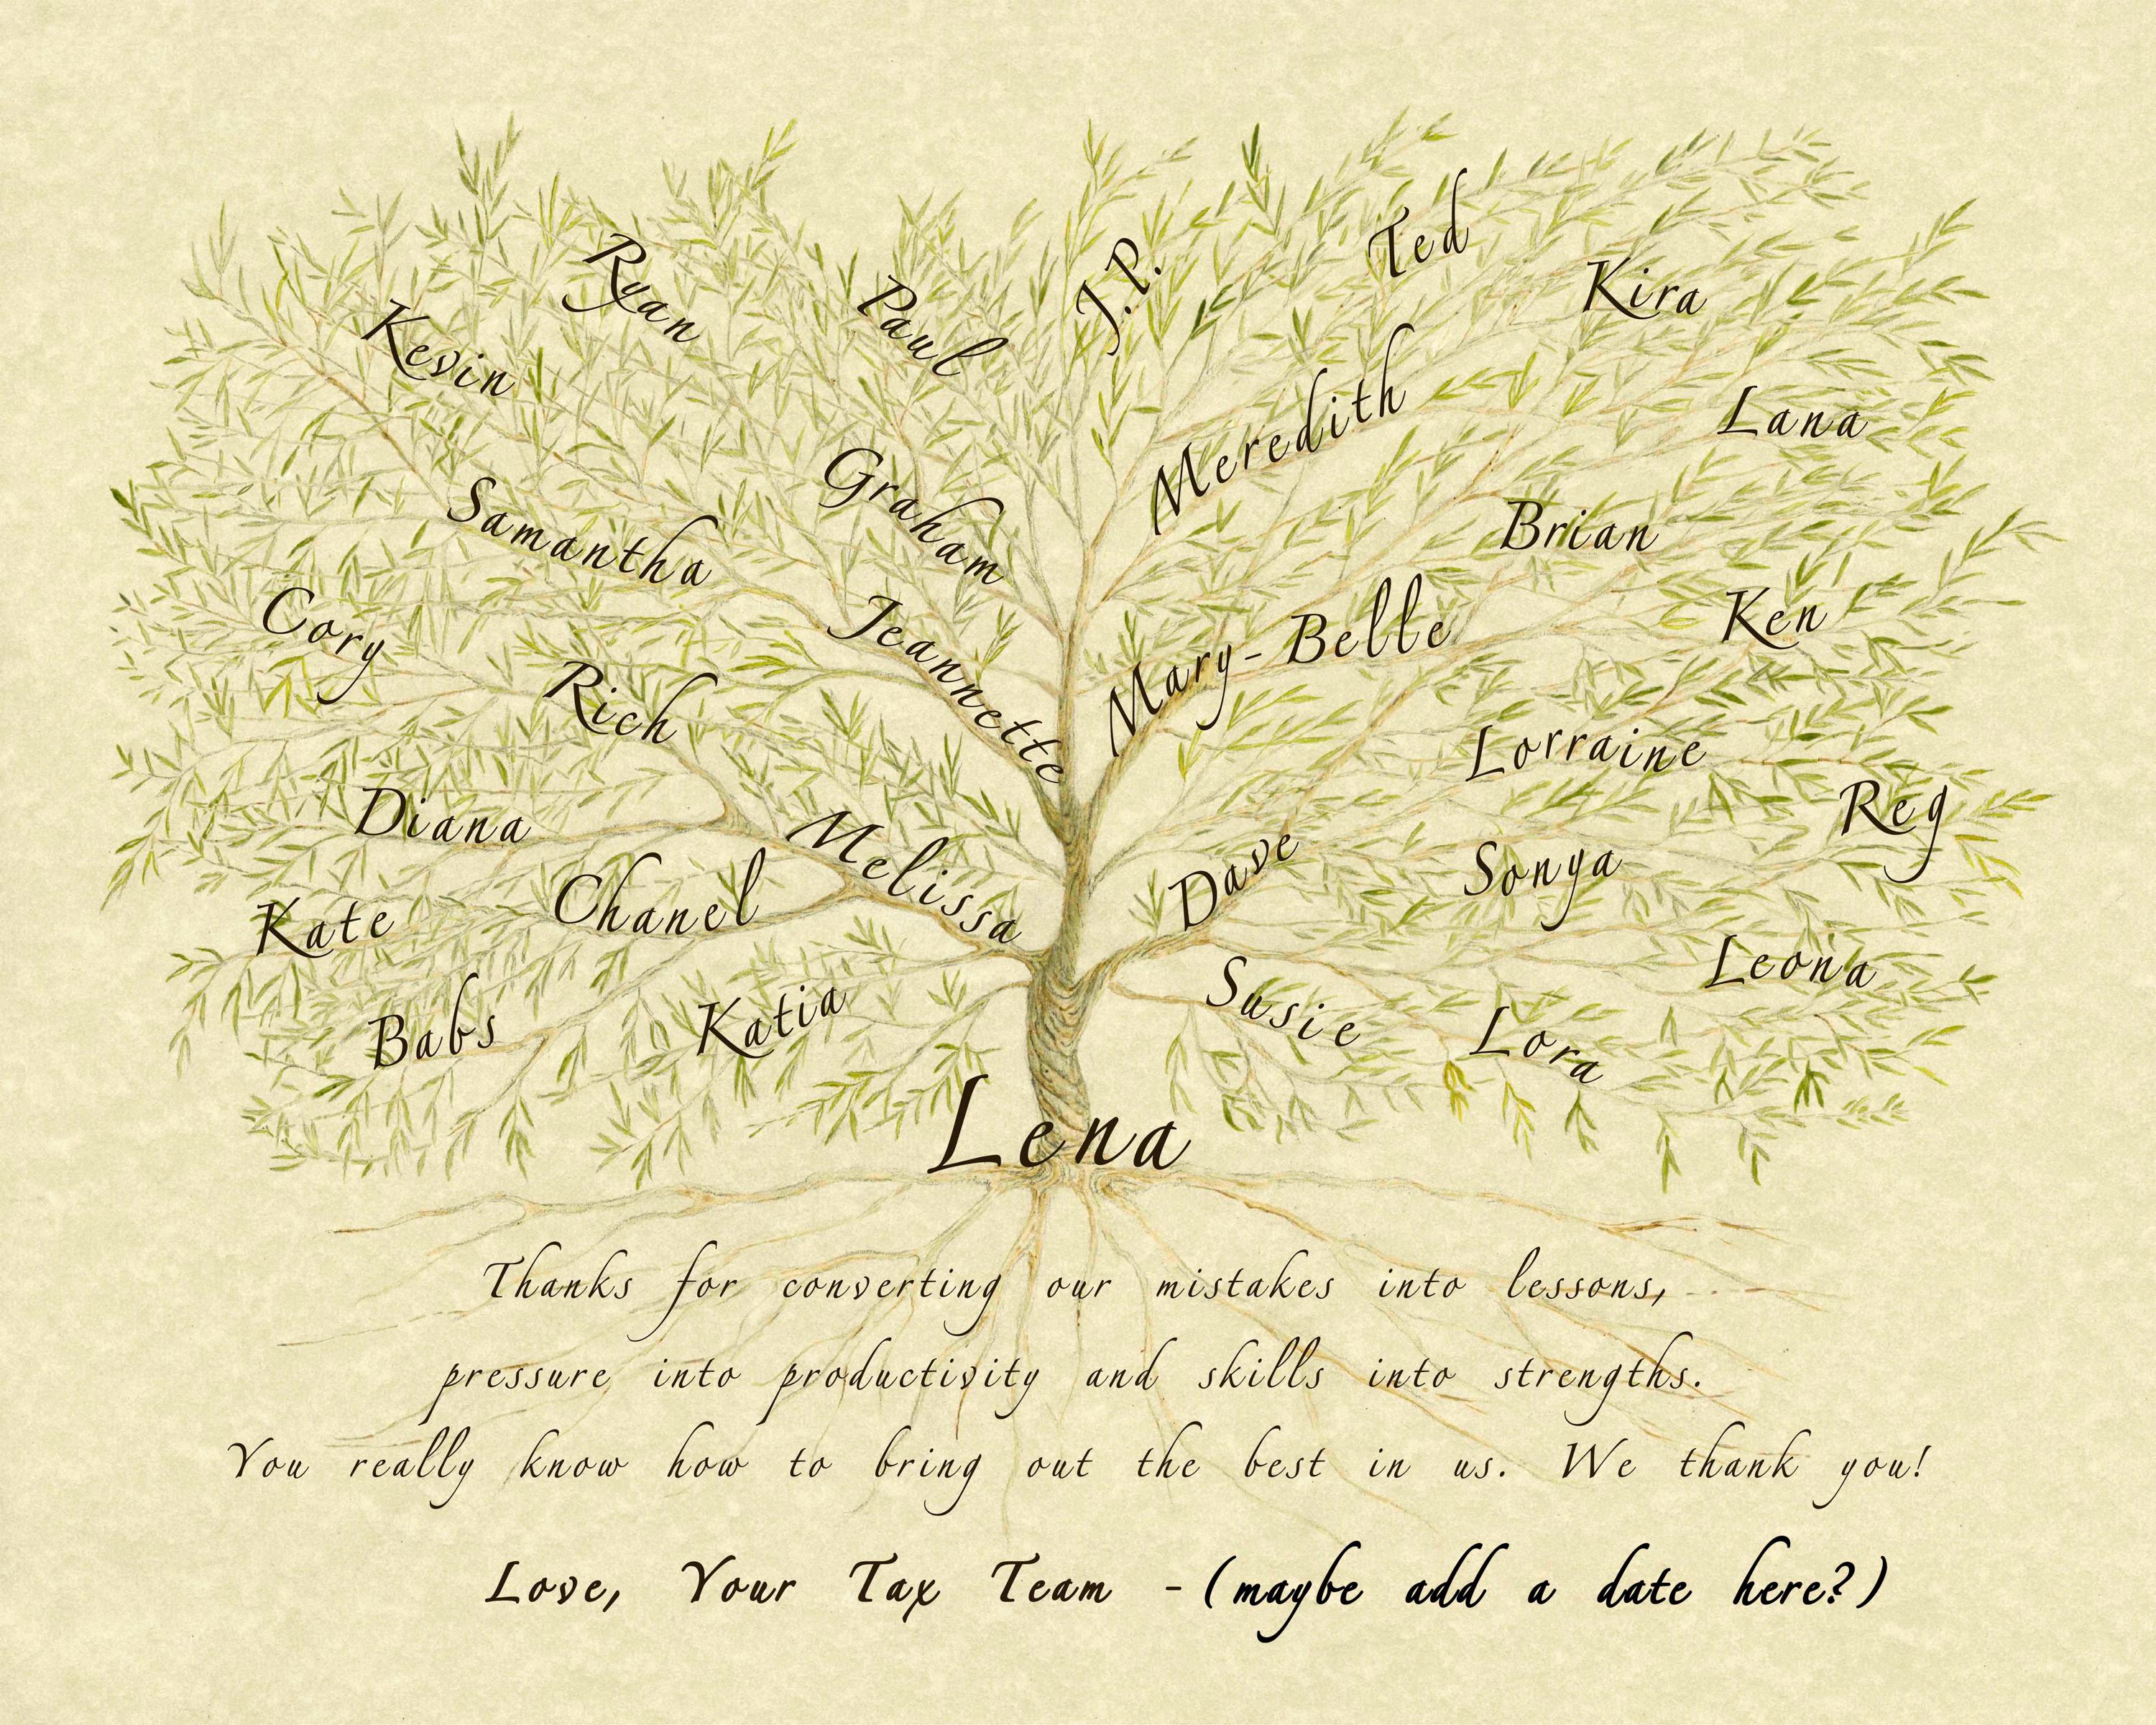 Ryan
Kevin
Paul
J.P.
Ted
Kira
Meredith
Lana
Graham
Samantha
Brian
Cory
Jeannette
Mary-Belle
Ken
Rich
Lorraine
Reg
Diana
Melissa
Dave
Sonya
Chanel
Kate
Leona
Babs
Katia
Susie
Lora
Lena
Thanks for converting our mistakes into lessons,
pressure into productivity and skills into strengths.
You really know how to bring out the best in us. We thank you!
Love, Your Tax Team - (maybe add a date here?)